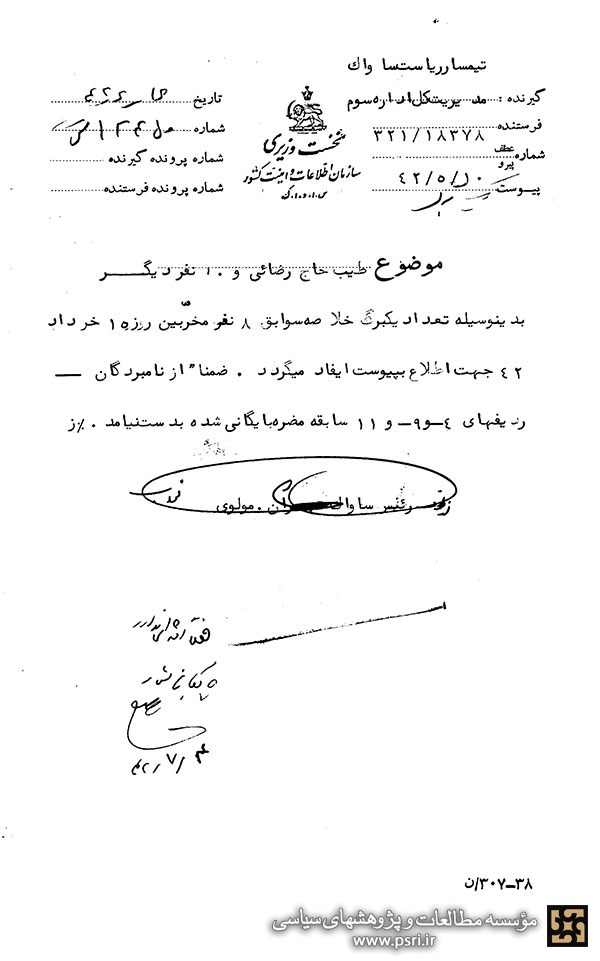 تیمسار ریاست ساواک
گیرنده : مدیریت کل اداره سوم
فرستنده
شماره عطف پیرو ۳۲۱/۱۸۳۷۸
۴۲/۵/۱۰
پیوست
نخست وزیری
سازمان اطلاعات و امنیت کشور
س.ا.و.ا.ک
تاریخ
شماره
شماره پرونده گیرنده
شماره پرونده فرستنده
موضوع طیب حاج رضائی و ۱۰ نفر دیگر
بدینوسیله تعداد یکبرگ خلاصه سوابق ۸ نفر مخربین روز ۱۵ خرداد
۴۲ جهت اطلاع بپیوست ایفاد میگردد . ضمنا" از نامبردگان —
ردیفهای ۴-و۹- و ۱۱ سابقه مضره بایگانی شده بدست نیامد . %ز
رئیس ساواک تهران . مولوی
۴۲/۷/۴
۳۸-۳۰۷/ن
مؤسسه مطالعات و پژوهشهای سیاسی
www.psri.ir